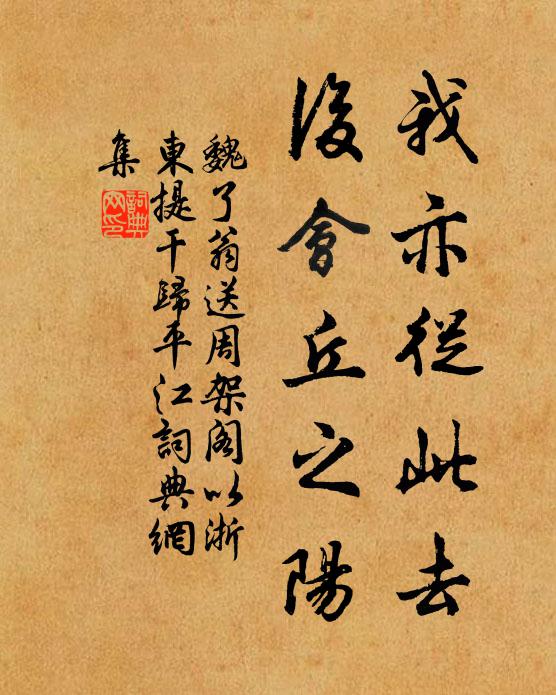 我亦從此去
後會丘之陽
魏了翁送周架阁以浙
東提干歸平江詞典網
集
詞典网印